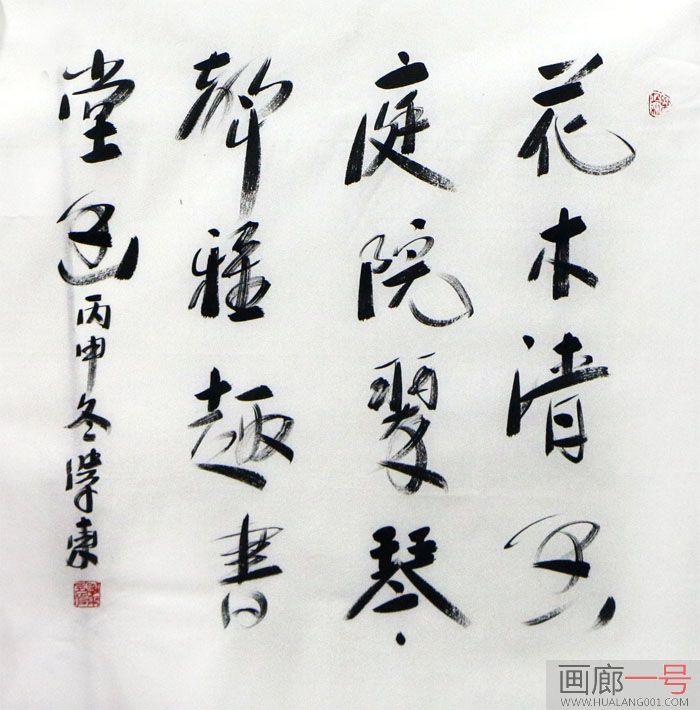 花木清香
庭院翠琴
聲雅趣書
堂幽
丙申冬
画廊一号
WWW.HUALANG001.COM